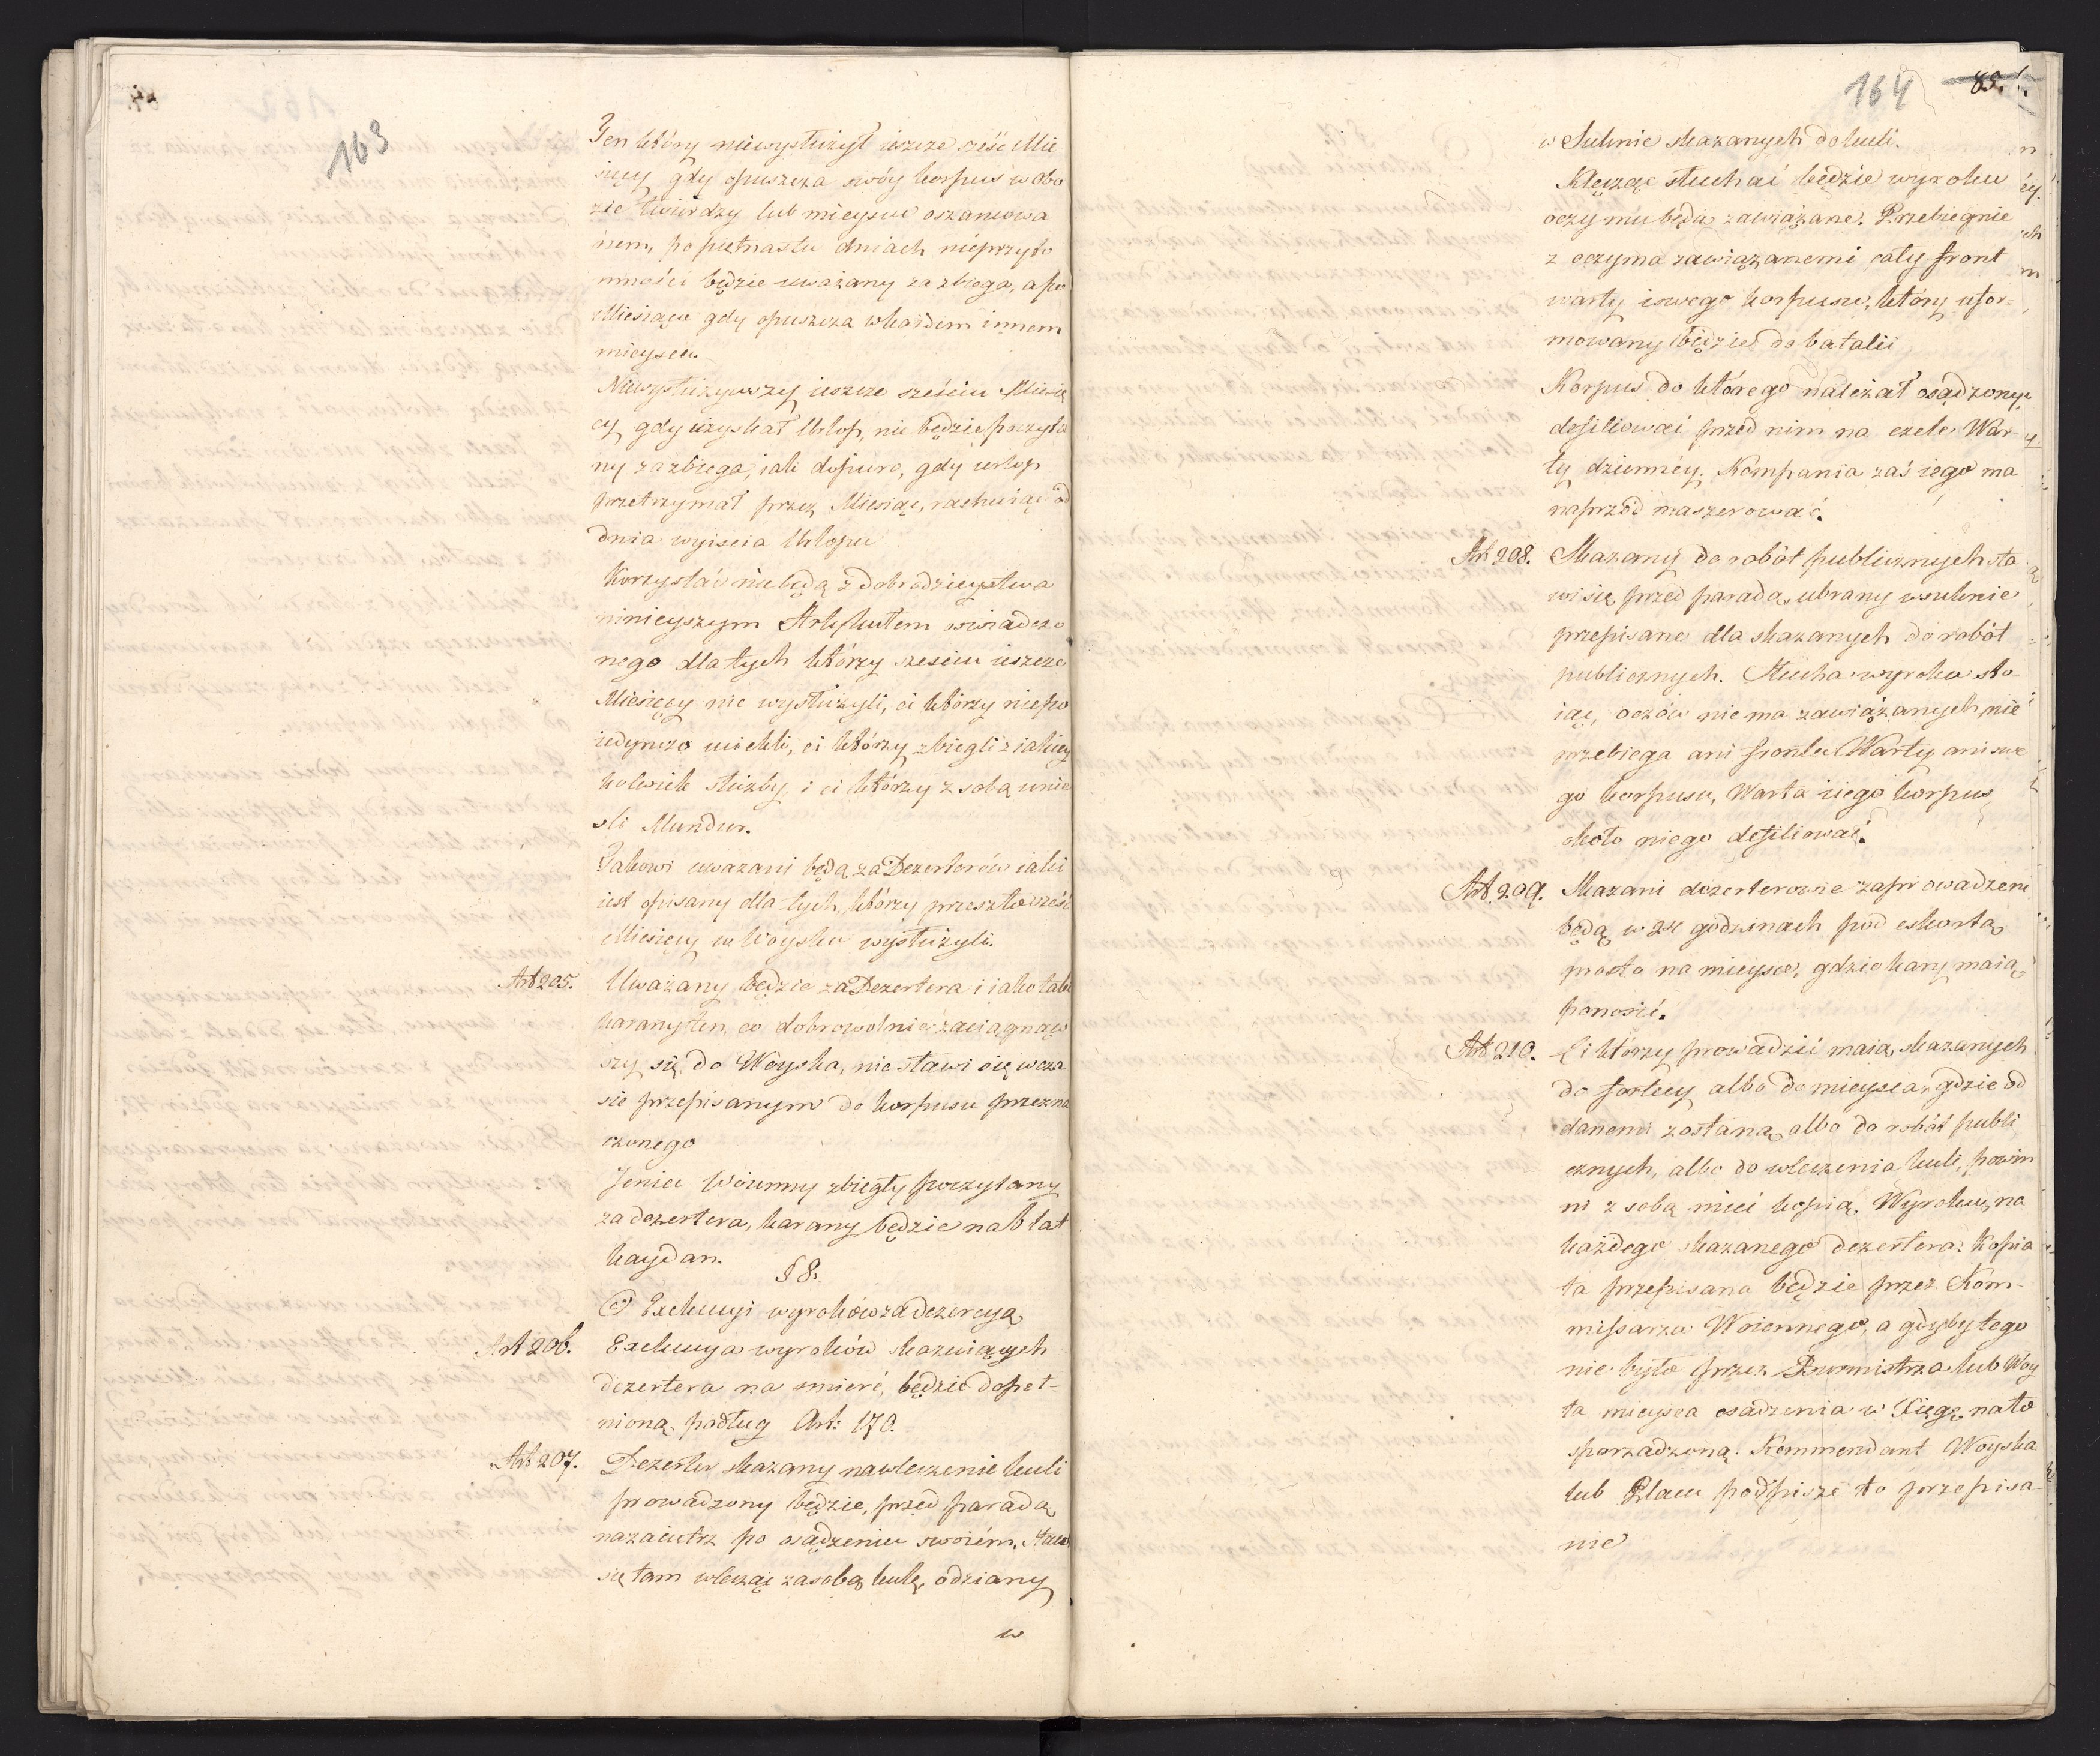 163
Ten który niewysłużył ieszcze sześć Mie
sięcy gdy opuszcza swóy korpus w obo
zie twierdzy lub mieyscu oszańcowa
nem, po piętnastu dniach nieprzyto
mności będzie uważany za zbiega, a po
Miesiącu gdy opuszcza w każdem innem
mieyscu.
Niewysłużywszy ieszcze sześciu Miesię
cy gdy uzyskał Urlop, nie będzie poczyta
ny za zbiega, iak dopiero, gdy urlop
przetrzymał przez Miesiąc, rachuiąc od
dnia wyiścia Urlopu
Korzystać niebędą z dobrodzieystwa
ninieyszym Artykułem świadczo
nego dla tych którzy sześciu ieszcze
Miesięcy nie wysłużyli, ci którzy niepo
iedynczo uciekli, ci którzy zbiegli z iakiey
kolwiek służby, i ci którzy z sobą unie
śli Mundur.
Takowi uważani będą za Dezerterów iaki
iest opisany dla tych, którzy przeszło sześć
Miesięcy w Woysku wysłużyli.
Art 205. Uważany będzie za Dezertera i iako taki
karany ten, co dobrowolnie zaciągnąw
szy się do Woyska, nie stawi się w cza
sie przepisanym do korpusu przezna
czonego
Jeniec Woienny zbiegły poczytany
za dezertera, karany będzie na 6 lat
kaydan.
§ 8.
O Exekucyi wyroków za dezercyą
Art 206. Exekucya wyroków skazuiących
dezertera na śmierć, będzie dopeł-
nioną podług Art: 170.
Art 207. Dezerter skazany na wleczenie kuli
prowadzony będzie, przed paradą
nazaiutrz po osądzeniu swoiém, stawi
się tam wlecząc za sobą kulę, odziany
w
164 83.
w Suknie skazanych do kuli.
Klęcząc słuchać będzie wyroku
oczy mu będą zawiązane. Przebiegnie
z oczyma zawiązanemi cały front
warty i swego korpusu, który ufor-
mowany będzie do batalii
Korpus do którego należał osądzony,
defiliować przed nim na czele War-
ty dzienney. Kompania zaś iego ma
naprzód maszerować.
Art 208. Skazany do robót publicznych sta
wi się przed paradą, ubrany w suknie
przepisane dla skazanych do robót
publicznych. Słucha wyroku sto
iąc, oczów nie ma zawiązanych, nie
przebiega ani frontu Warty ani swe
go korpusu, Warta i iego korpus
około niego defiliować.
Art. 209. Skazani dezerterowie zaprowadzeni
będą w 24 godzinach pod eskortą
prosto na mieysce, gdzie kary maią
ponosić.
Art 210. Ci którzy prowadzić maią skazanych
do fortecy albo do mieysca, gdzie od
danemi zostaną, albo do robót publi
cznych, albo do wleczenia kuli, powin
ni z sobą mieć kopią. Wyroku, na
każdego skazanego dezertera. Kopia
ta przepisana będzie przez Kom-
missarza Woiennego, a gdyby tego
nie było przez Burmistrza lub Woy
ta mieysca osądzenia w Xięgę na to
sporządzoną. Kommendant Woyska
lub Placu podpisze to przepisa
nie